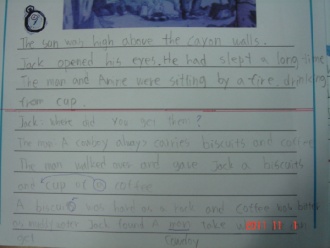 9
The sun was high above the cayon walls.
Jack opened his eyes. He had slept a long time
The man and Annie were sitting by a fire, drinking
from cup.
Jack: Where did you get them?
The man: A cowboy always carries biscuits and coffee
The man walked over and gave Jack a biscuits
and cup of coffee
A biscuit was hard as a rock and coffee was bitter
as muddy water Jack found A new
get